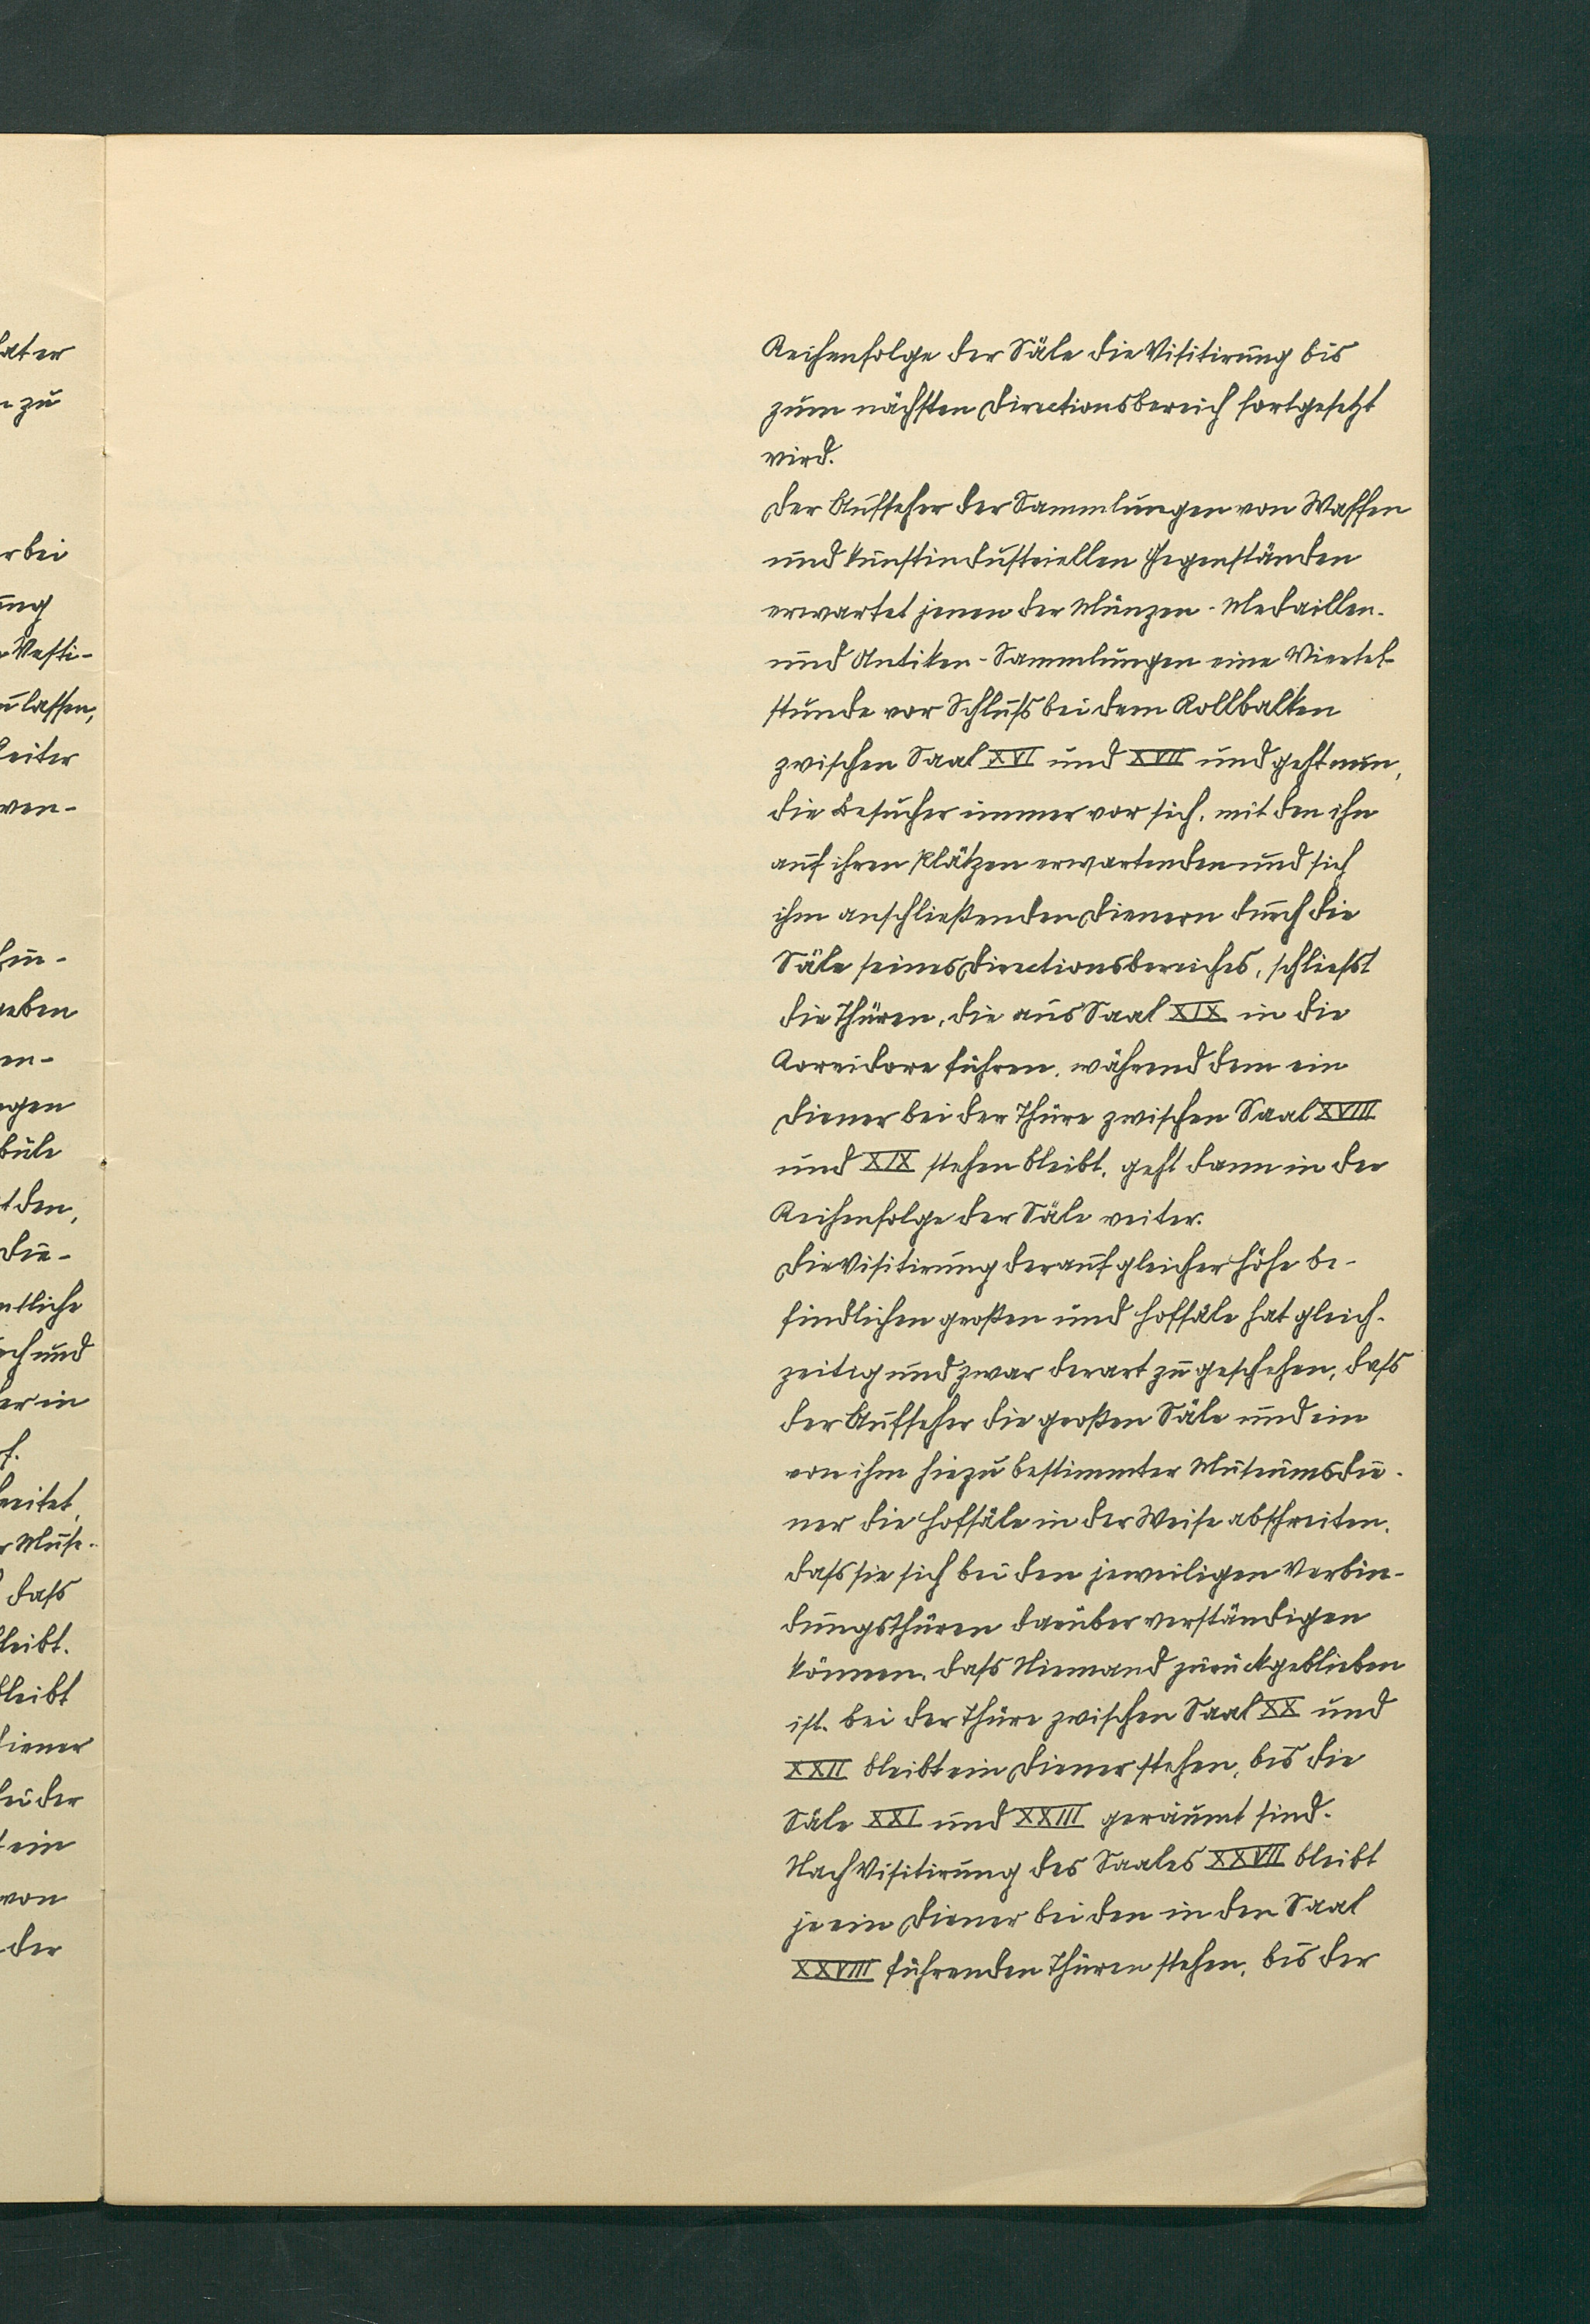 hat er
n zu
r bei
ung
Vesti-
zu lassen,
leiter
wen-
hin-
geben
en-
egen
büle
t den,
die-
ntliche
ch und
er in
f.
reitet,
r Muse-
dass
leibt.
bleibt
diener
bei der
t ein
von
der
Reihenfolge der Säle die Visitirung bis
zum nächsten Directionsbereich fortgesetzt
wird.
Der Aufseher der Sammlungen von Waffen
und kunstindustriellen Gegenständen
erwartet jenen der Münzen-Medaillen-
und Antiken-Sammlungen eine Viertel-
stunde vor Schluss bei dem Rollbalken
zwischen Saal XVI und XVII und geht nun,
die Besucher immer vor sich, mit den ihn
auf ihren Plätzen erwartenden und sich
ihm anschließenden Dienern durch die
Säle seines Directionsbereiches, schliesst
die Thüren, die aus Saal XIX in die
Corridore führen, während dem ein
Diener bei der Thüre zwischen Saal XVIII
und XIX stehen bleibt, geht dann in der
Reihenfolge der Säle weiter.
Die Visitirung der auf gleicher Höhe be-
findlichen großen und Hofsäle hat gleich-
zeitig und zwar derart zu geschehen, dass
der Aufseher die großen Säle und ein
von ihm hiezu bestimmter Museumsdie-
ner die Hofsäle in der Weise abschreiten,
dass sie sich bei den jeweiligen Verbin-
dungsthüren darüber verständigen
können, dass Niemand zurückgeblieben
ist. Bei der Thüre zwischen Saal XX und
XXII bleibt ein Diener stehen, bis die
Säle XXI und XXIII geräumt sind.
Nach Visitirung des Saales XXVII bleibt
je ein Diener bei den in den Saal
XXVIII führenden Thüren stehen, bis der